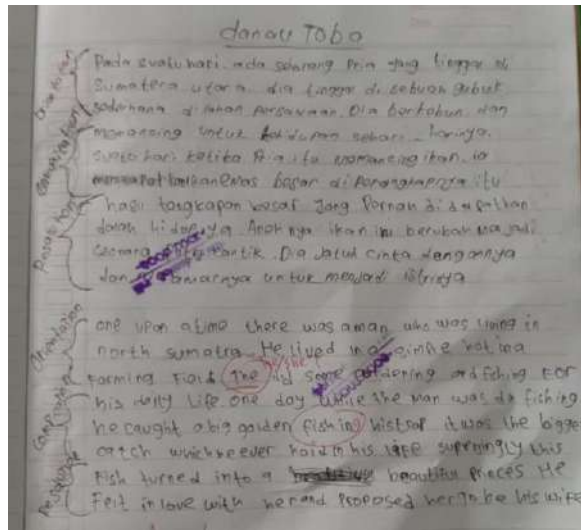 danau Toba
Pada suatu hari ada seorang Pria yang tinggal di
Sumatera utara. dia tinggal di sebuah gubuk
sederhana di lahan persawaan. Dia berkebun dan
memancing untuk kehidupan sehari-harinya.
suatu hari ketika Pria itu memancing ikan. ia
ikan emas besar di Perangkapnya itu
hasil tangkapan besar yang Pernah di dapatkan
dalam hidupnya. Anehnya ikan ini berubah menjadi
seorang cantik. Dia jatuh cinta dengannya
dan untuk menjadi istrinya
Orientation
one upon a time there was a man who was living in
north sumatra He lived in a simple hot in a
he/she
Farming Field The did some gardening and fishing For
his daily Life one day while the man was do fishing
he caught a big golden fishing his trap it was the bigge
catch which he ever had in his life suprningly this
Fish turned into a beautiful princes He
Felt in love with her and Proposed her to be his wife